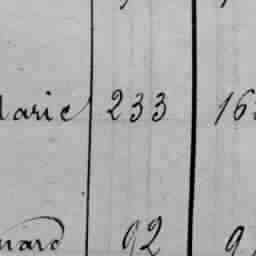 Marie 233 16
nard 92 9